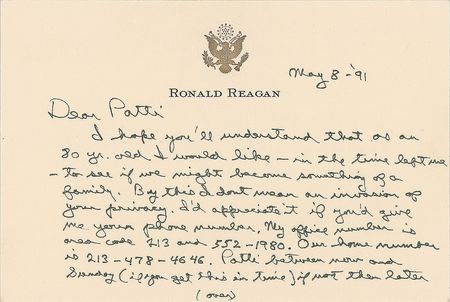 May 8-'91
RONALD REAGAN
Dear Patti
I hope you'll understand that as an
80 yr. old I would like – in the time left me
– to see if we might become something of a
family. By this I dont mean an invasion of
your privacy. I'd appreciate it if you'd give
me your phone number. My office number is
area code 213 and 552-1980. Our home number
is 213-478-4646. Patti between now and
Sunday (if you get this in time) if not then later
(over)